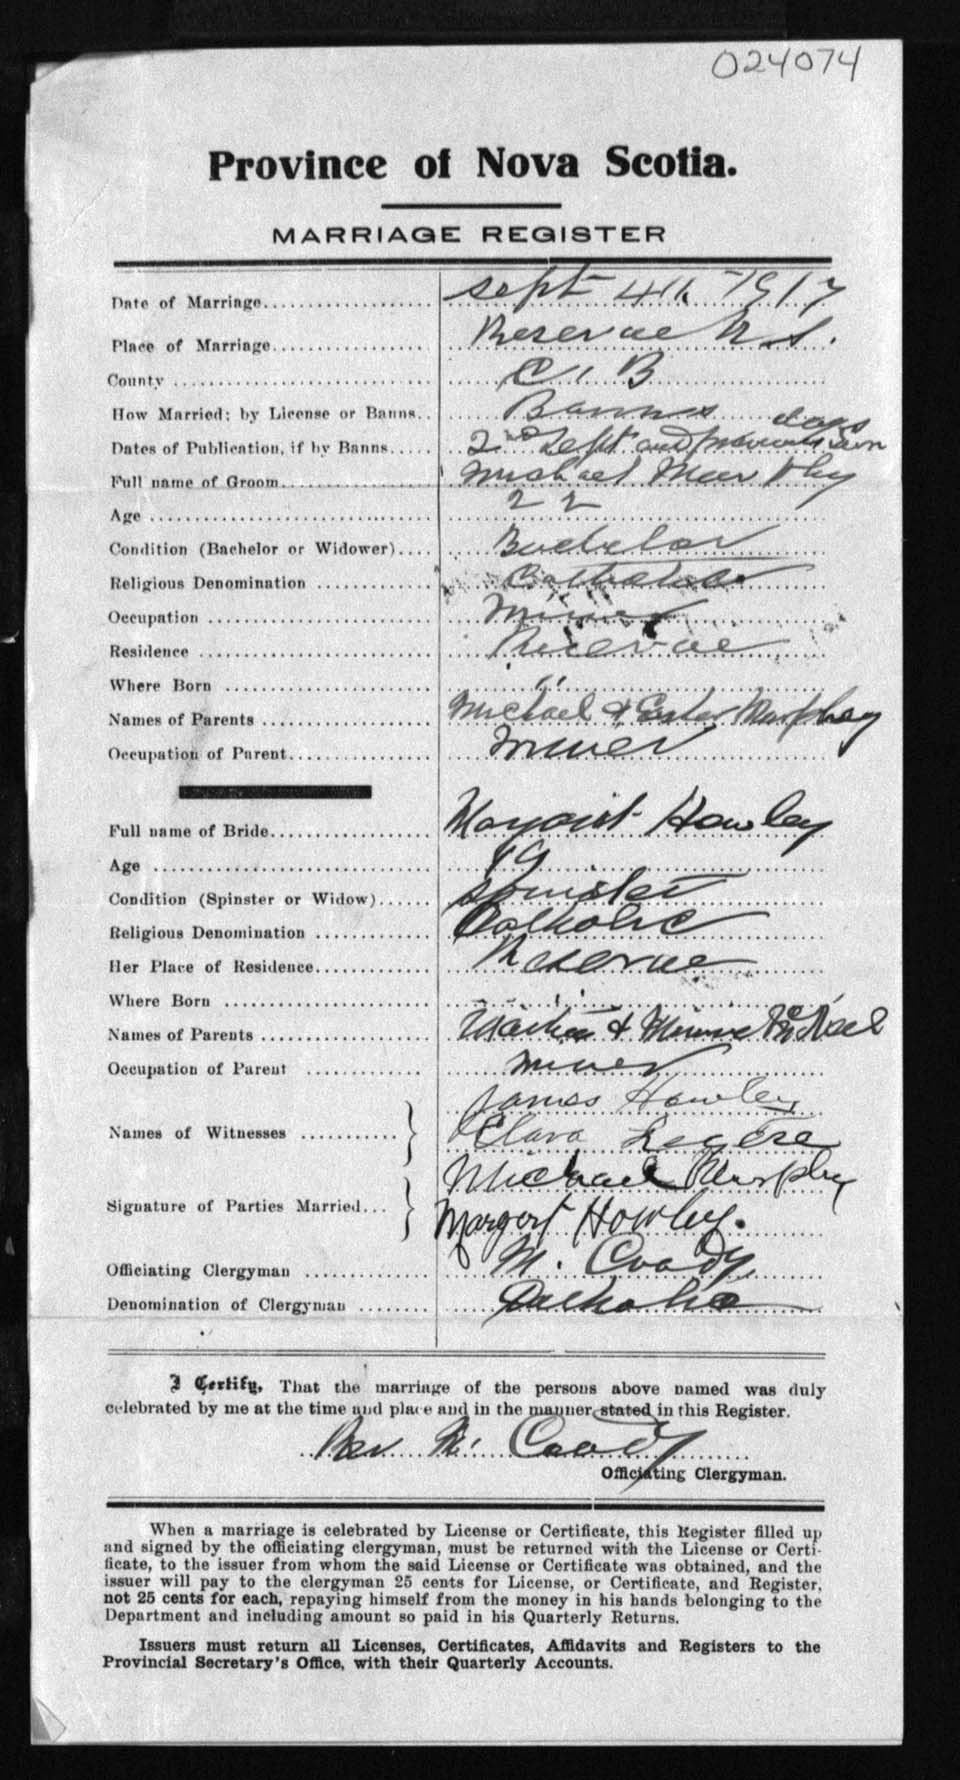 024074
Province of Nova Scotia.
MARRIAGE REGISTER
Date of Marriage.................... Sept 4th 1917
Place of Marriage.................... Reserve N.S.
County .............................. C. B
How Married; by License or Banns.. Banns
Dates of Publication, if by Banns..... 2nd Sept and previous days
Full name of Groom.................... Michael Murphy
Age .............................. 22
Condition (Bachelor or Widower).... Bachelor
Religious Denomination .............. Catholic
Occupation .......................... Miner
Residence .......................... Reserve
Where Born ........................ "
Names of Parents .................... Michael & Ester Murphey
Occupation of Parent.................. Miner
Full name of Bride.................... Margaret Howley
Age .............................. 19
Condition (Spinster or Widow)...... Spinster
Religious Denomination .............. Catholic
Her Place of Residence.............. Reserve
Where Born ........................ "
Names of Parents .................... Martin & Minnie
Occupation of Parent .............. Miner
James Howley
Names of Witnesses ........... } Clara Legere
Michael Murphy
Signature of Parties Married... } Margert Howley.
Officiating Clergyman .............. M. Coady
Denomination of Clergyman ........ Catholic
I Certify, That the marriage of the persons above named was duly
celebrated by me at the time and place and in the manner stated in this Register.
Rev M. Coady
Officiating Clergyman.
When a marriage is celebrated by License or Certificate, this Register filled up
and signed by the officiating clergyman, must be returned with the License or Certi-
ficate, to the issuer from whom the said License or Certificate was obtained, and the
issuer will pay to the clergyman 25 cents for License, or Certificate, and Register,
not 25 cents for each, repaying himself from the money in his hands belonging to the
Department and including amount so paid in his Quarterly Returns.
Issuers must return all Licenses, Certificates, Affidavits and Registers to the
Provincial Secretary's Office, with their Quarterly Accounts.